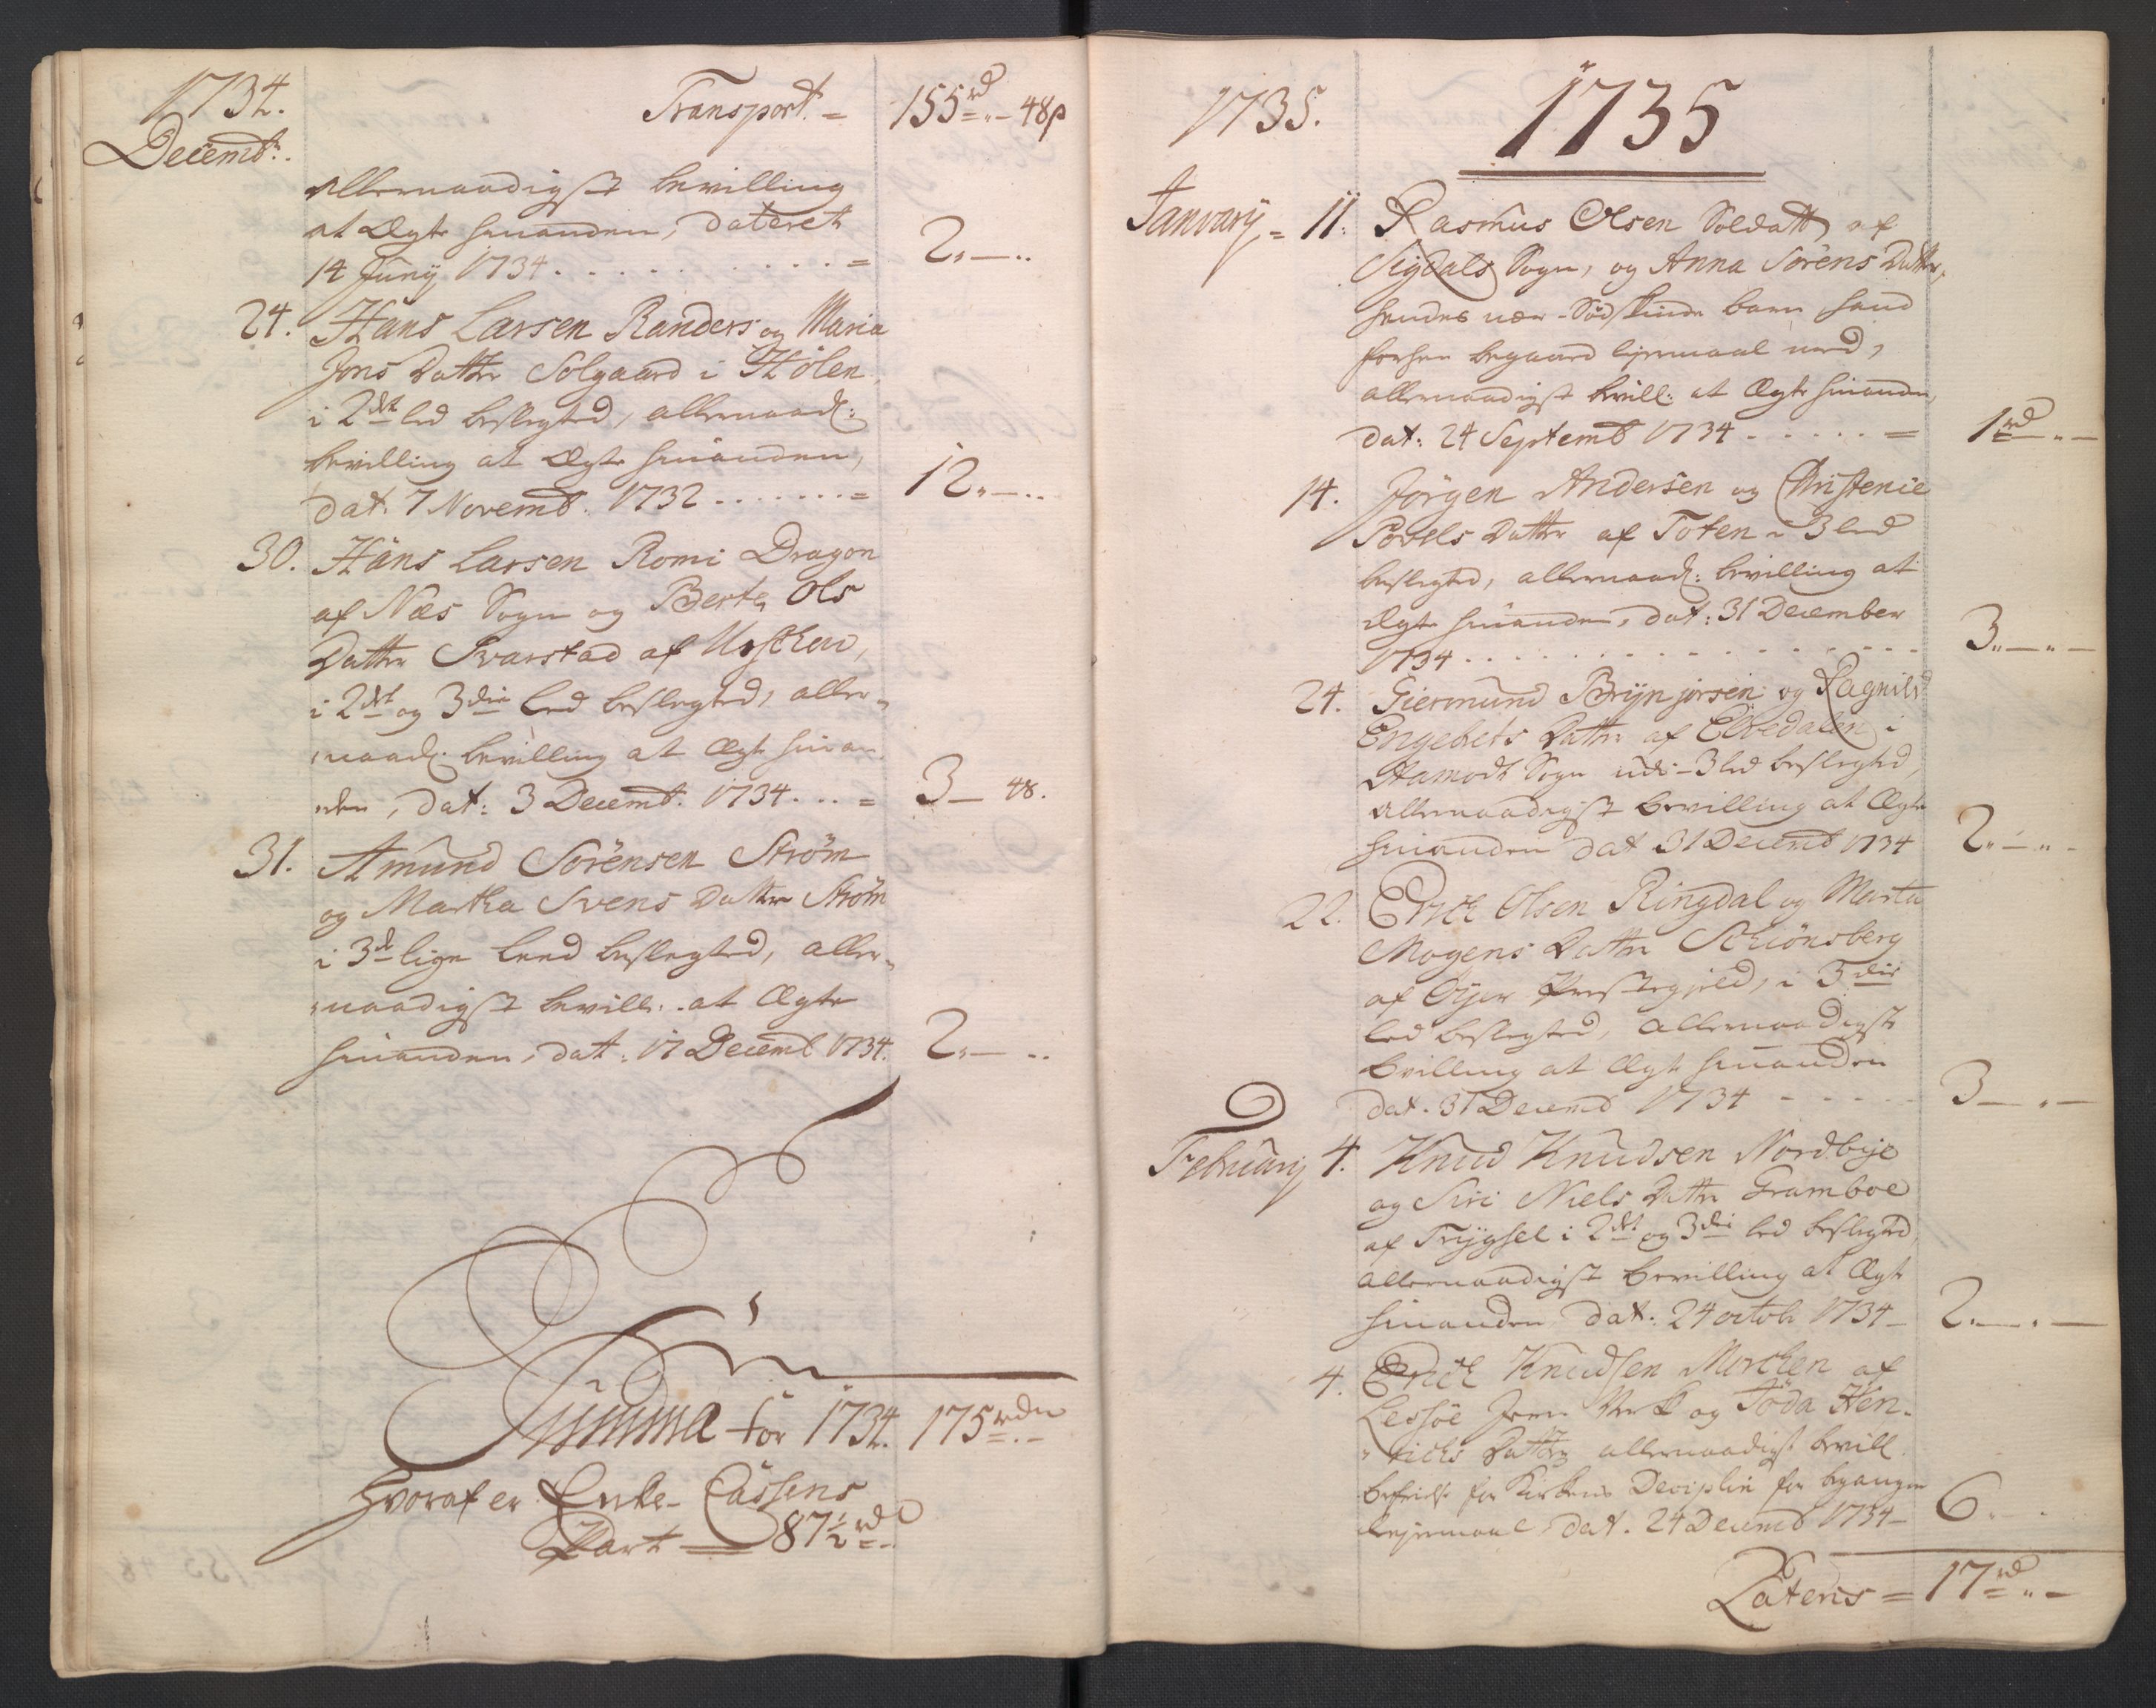 1734.
Transport = 155 rd „ – 48 s
Decembr.
allernaadigst bevilling
at Ægte hinanden, dateret
14 Junij 1734 . . . . . . . . . . = 2„ – ..
24. Hans Larsen Randers og Maria
Jons Datter Solgaard i Hölen
i 2det led beslegted, allernaad:
bevilling at Ægte hinanden,
dat. 7 Novemb. 1732 . . . . . . . = 12„ – ..
30. Hans Larsen Romi Dragon
af Næs Sogn og Berte Ols
Datter Svarstad af
i 2det og 3die Led beslegted, aller=
naad: bevilling at Ægte hinan
den, dat: 3 Decemb. 1734 . . . = 3 – 48.
31. Amund Sörensen Ström
og Martha Svens Datter Ström
i 3de lige Leed beslegted, aller=
naadigst bevill: at Ægte
hinanden, dat: 17 Decemb 1734. 2„ – ..
Summa for 1734. 175 rdr „ –
hvoraf er Enke-Cassens
Part = 87½ rd
1735.
1735
Januarij = 11. Rasmus Olsen Soldatt af
Sigdals Sogn, og Anna Sörens Datter,
hendes nær-Södskinde barn hand
forhen begaaed lejermaal med,
allernaadigst bevill: at Ægte hinanden,
dat: 24 Septemb 1734 . . . . . = 1 rd „ –
14. Jörgen Andersen og Christenie
Povels Datter af Toten i 3 led
beslegted, allernaad: bevilling at
Ægte hinanden, dat: 31 December
1734 . . . . . . . . . . . . . 3„ – „ –
24. Giermund Brynjorsen og Ragnild
Engebets Datter af Elvedalen i
Aamodt Sogn udi 3 led beslegted,
allernaadigst bevilling at Ægte
hinanden dat 31 Decemb 1734 2„ – „ –
22. Erick Olsen Ringdal og Marta
Mogens Datter Skiönsberg
af Öyer Præstegjeld, i 3die
led beslegted, allernaadigst
bevilling at Ægte hinanden
dat. 31 Decemb 1734 - - - - - 3 – „ –
Februarij 4. Knud Knudsen Nordbye
og Siri Niels Datter Gramboe
af Trygsel i 2det og 3die led beslegted,
allernaadigst bevilling at Ægte
hinanden dat. 24 octob 1734 – 2„ – . –
4. Erick Knudsen Morcken af
Lessöe Jern Verk og Töda Hen=
richs Datter allernaadigst bevill
befrielse for Kirkens Deciplin for begangen
lejermaal, dat. 24 Decemb 1734 – 6. .
Lateris = 17 rd „ –